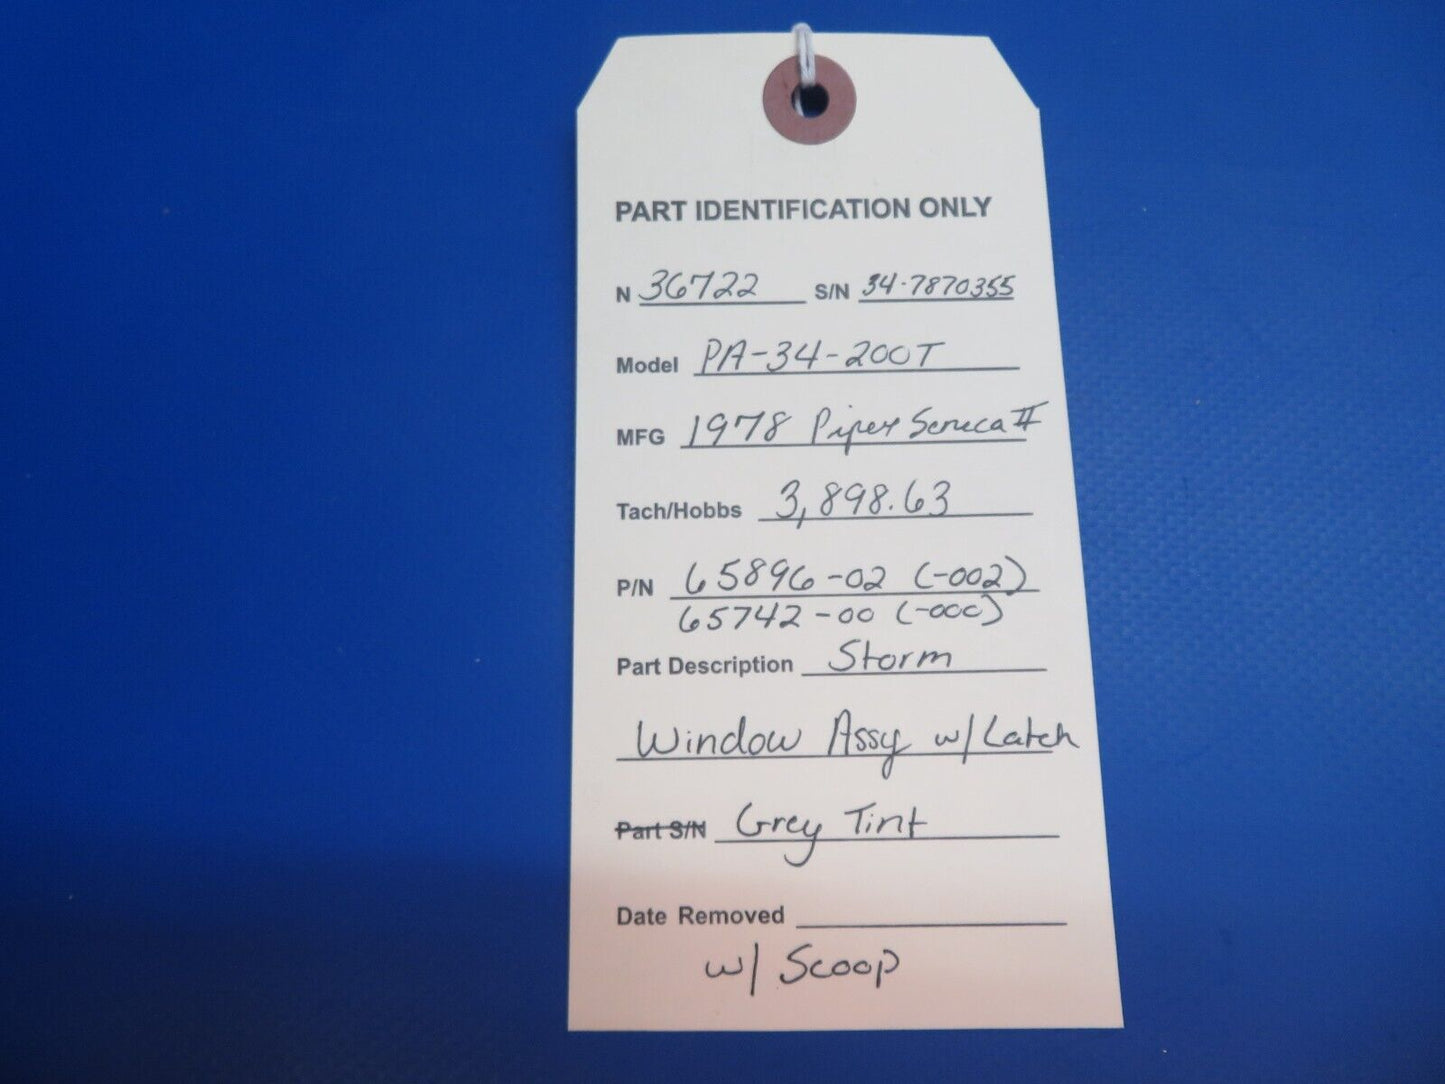 PART IDENTIFICATION ONLY
N 36722 S/N 34-7870355
Model PA-34-200T
MFG 1978 Piper Seneca II
Tach/Hobbs 3,898.63
P/N 65896-02 (-002)
65742-00 (-000)
Part Description Storm
Window Assy w/ Latch
Part S/N Grey Tint
Date Removed
w/ Scoop